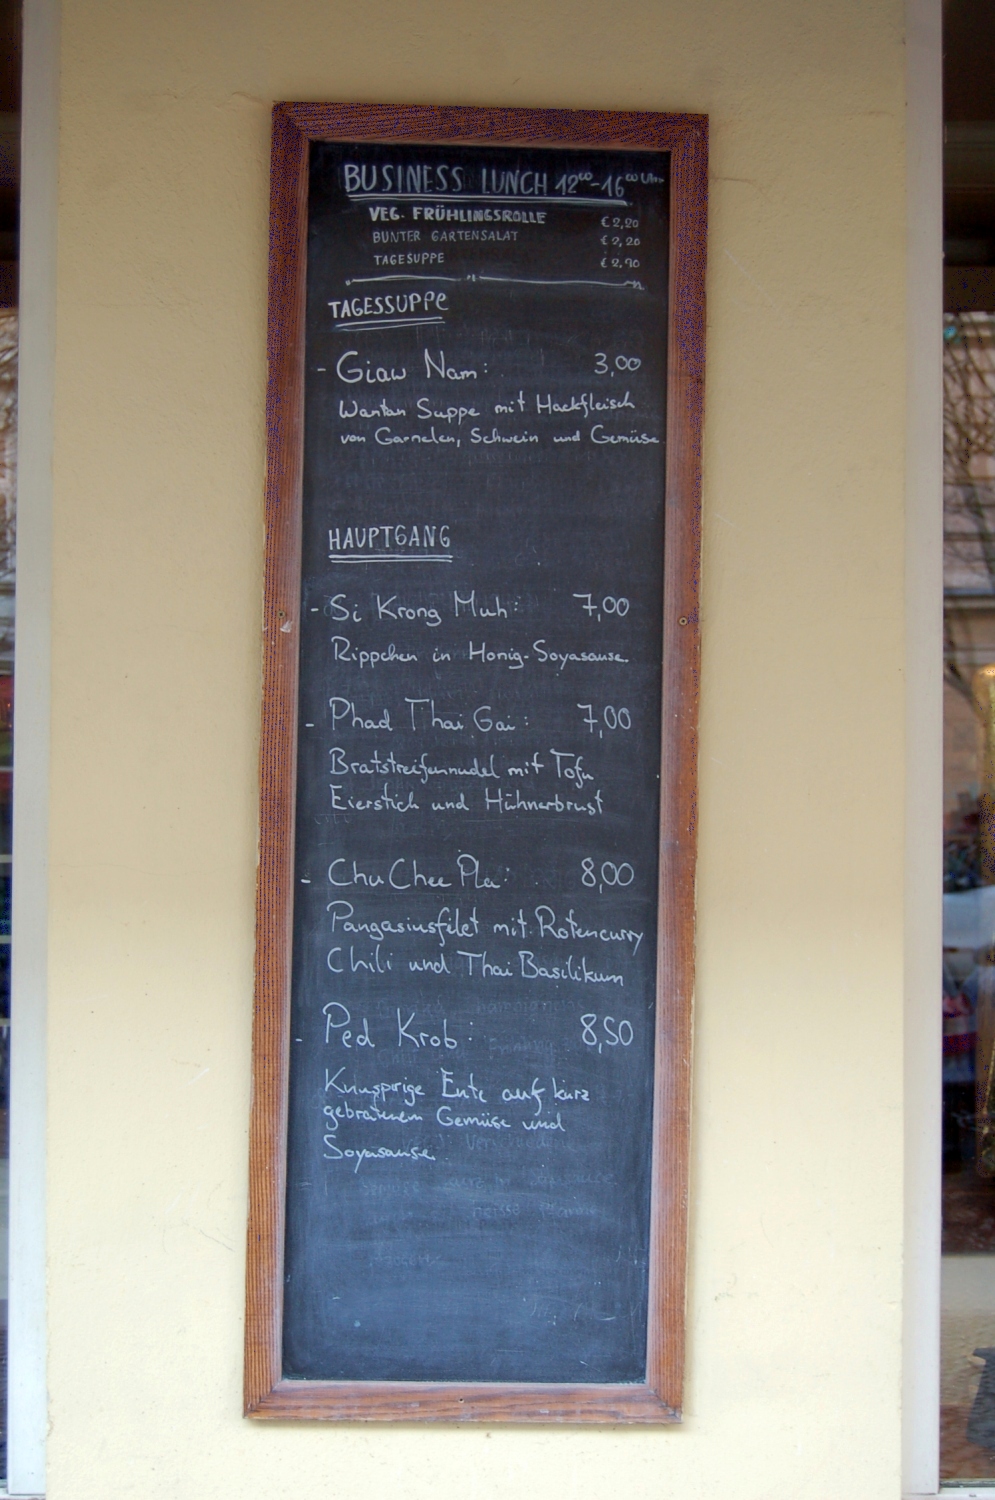 BUSINESS LUNCH 12⁰⁰-16⁰⁰ Uhr
VEG. FRÜHLINGSROLLE € 2,20
BUNTER GARTENSALAT € 2,20
TAGESUPPE € 2,90
TAGESSUPPE
- Giaw Nam: 3,00
Wantan Suppe mit Hackfleisch
von Garnelen, Schwein und Gemüse
HAUPTGANG
- Si Krong Muh: 7,00
Rippchen in Honig-Soyasause.
- Phad Thai Gai: 7,00
Bratstreifennudel mit Tofu
Eierstich und Hühnerbrust
- Chu Chee Pla: 8,00
Pangasiusfilet mit Rotencurry
Chili und Thai Basilikum
- Ped Krob: 8,50
Knusprige Ente auf kurz
gebratenem Gemüse und
Soyasause.